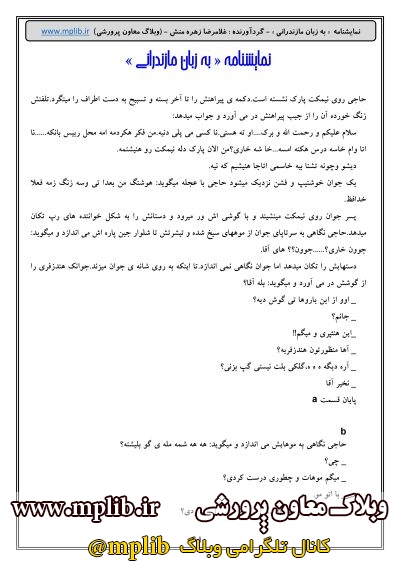 نمایشنامه « به زبان مازندرانی » - گردآورنده : غلامرضا زهره منش - (وبلاگ معاون پرورشی) www.mplib.ir
نمایشنامه « به زبان مازندرانی »
حاجی روی نیمکت پارک نشسته است.دکمه ی پیراهنش را تا آخر بسته و تسبیح به دست اطراف را مینگرد.تلفنش
زنگ خورده آن را از جیب پیراهنش در می آورد و جواب میدهد:
سلام علیکم و رحمت الله و برک....او نه هستی.نا کسی می پلی دنیه.من فکر هکردمه امه محل رییس بانکه.....نا
اتا وام خاسه درس هکنه امسه...خا شه خاری؟من الان پارک دله نیمکت رو هنیشتمه.
دیشو وچونه تشنا بیه خاسمی اتاجا هنیشیم که نیه.
یک جوان خوشتیپ و فشن نزدیک میشود حاجی با عجله میگوید: هوشنگ من بعدا تی وسه زنگ زمه فعلا
خدافظ.
پسر جوان روی نیمکت مینشیند و با گوشی اش ور میرود و دستانش را به شکل خواننده های رپ تکان
میدهد.حاجی نگاهی به سرتاپای جوان از موههای سیخ شده و تیشرتش تا شلوار جین پاره اش می اندازد و میگوید:
جوون خاری؟......جوون؟؟ های آقا.
دستهایش را تکان میدهد اما جوان نگاهی نمی اندازد.تا اینکه به روی شانه ی جوان میزند.جوانک هندزفری را
از گوشش در می آورد و میگوید: بله آقا؟
_ اوو از این یاروها تی گوش دیه؟
_ جانم؟
_این هنتپری و میگم!!
_ آها منظورتون هندزفریه؟
_ آره دیگه ه ه ه.گلکی بلت نیستی گپ بزنی؟
_ نخیر آقا
پایان قسمت a
b
حاجی نگاهی به موهایش می اندازد و میگوید: هه هه شمه مله ی گو بلیشته؟
_ چی؟
_ میگم موهات و چطوری درست کردی؟
_ با اتو مو.
دی؟
وبلاگ معاون پرورشی www.mplib.ir
کانال تلگرامی وبلاگ @mplib